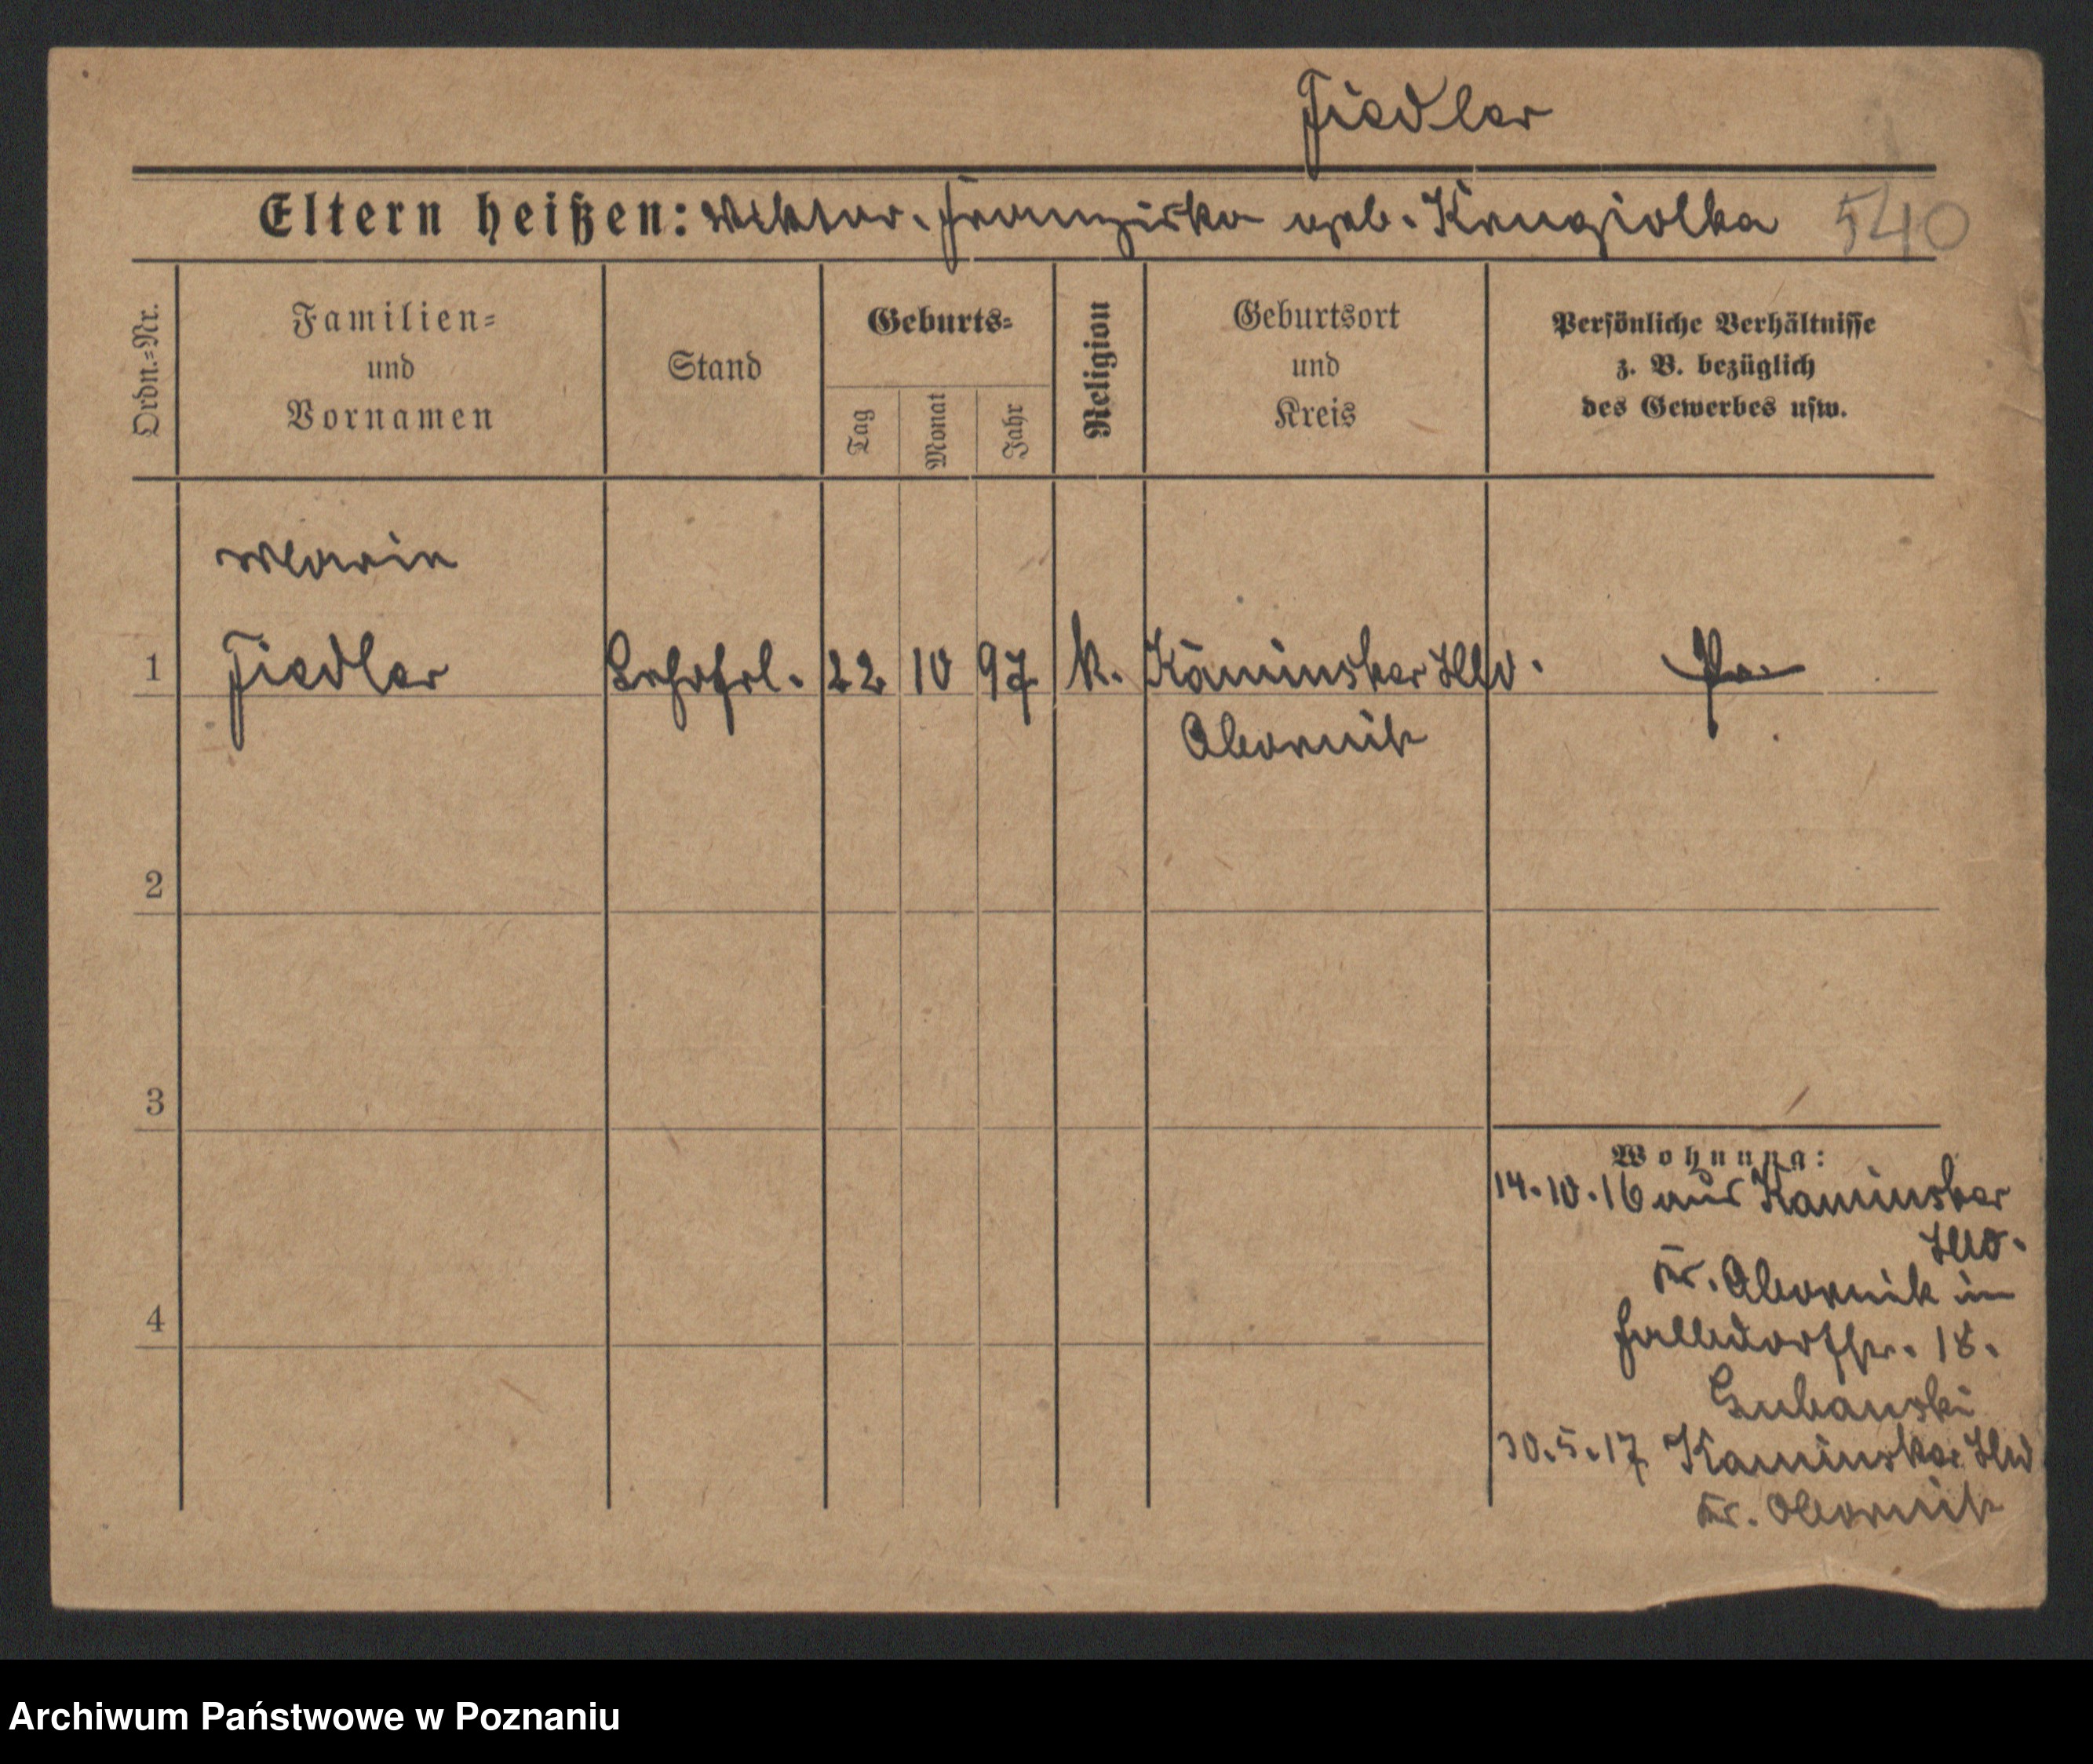 Fiedler
Eltern heißen: Viktor. Franziska geb. Krugiolka 540
Ordn.=Nr.
Familien=
und
Vornamen
Stand
Geburts=
Tag
Monat
Jahr
Religion
Geburtsort
und
Kreis
Persönliche Verhältnisse
z. B. bezüglich
des Gewerbes usw.
Maria
1 Fiedler Lehrfrl. 22 10 97 k. Kaminsker Hld. Pr.
Obornik
2
3
Wohnung:
14.10.16 aus Kaminsker
Hld.
Kr. Obornik in
4
18.
Lubanski
30.5.17 Kaminsker Hld
Kr. Obornik
Archiwum Państwowe w Poznaniu